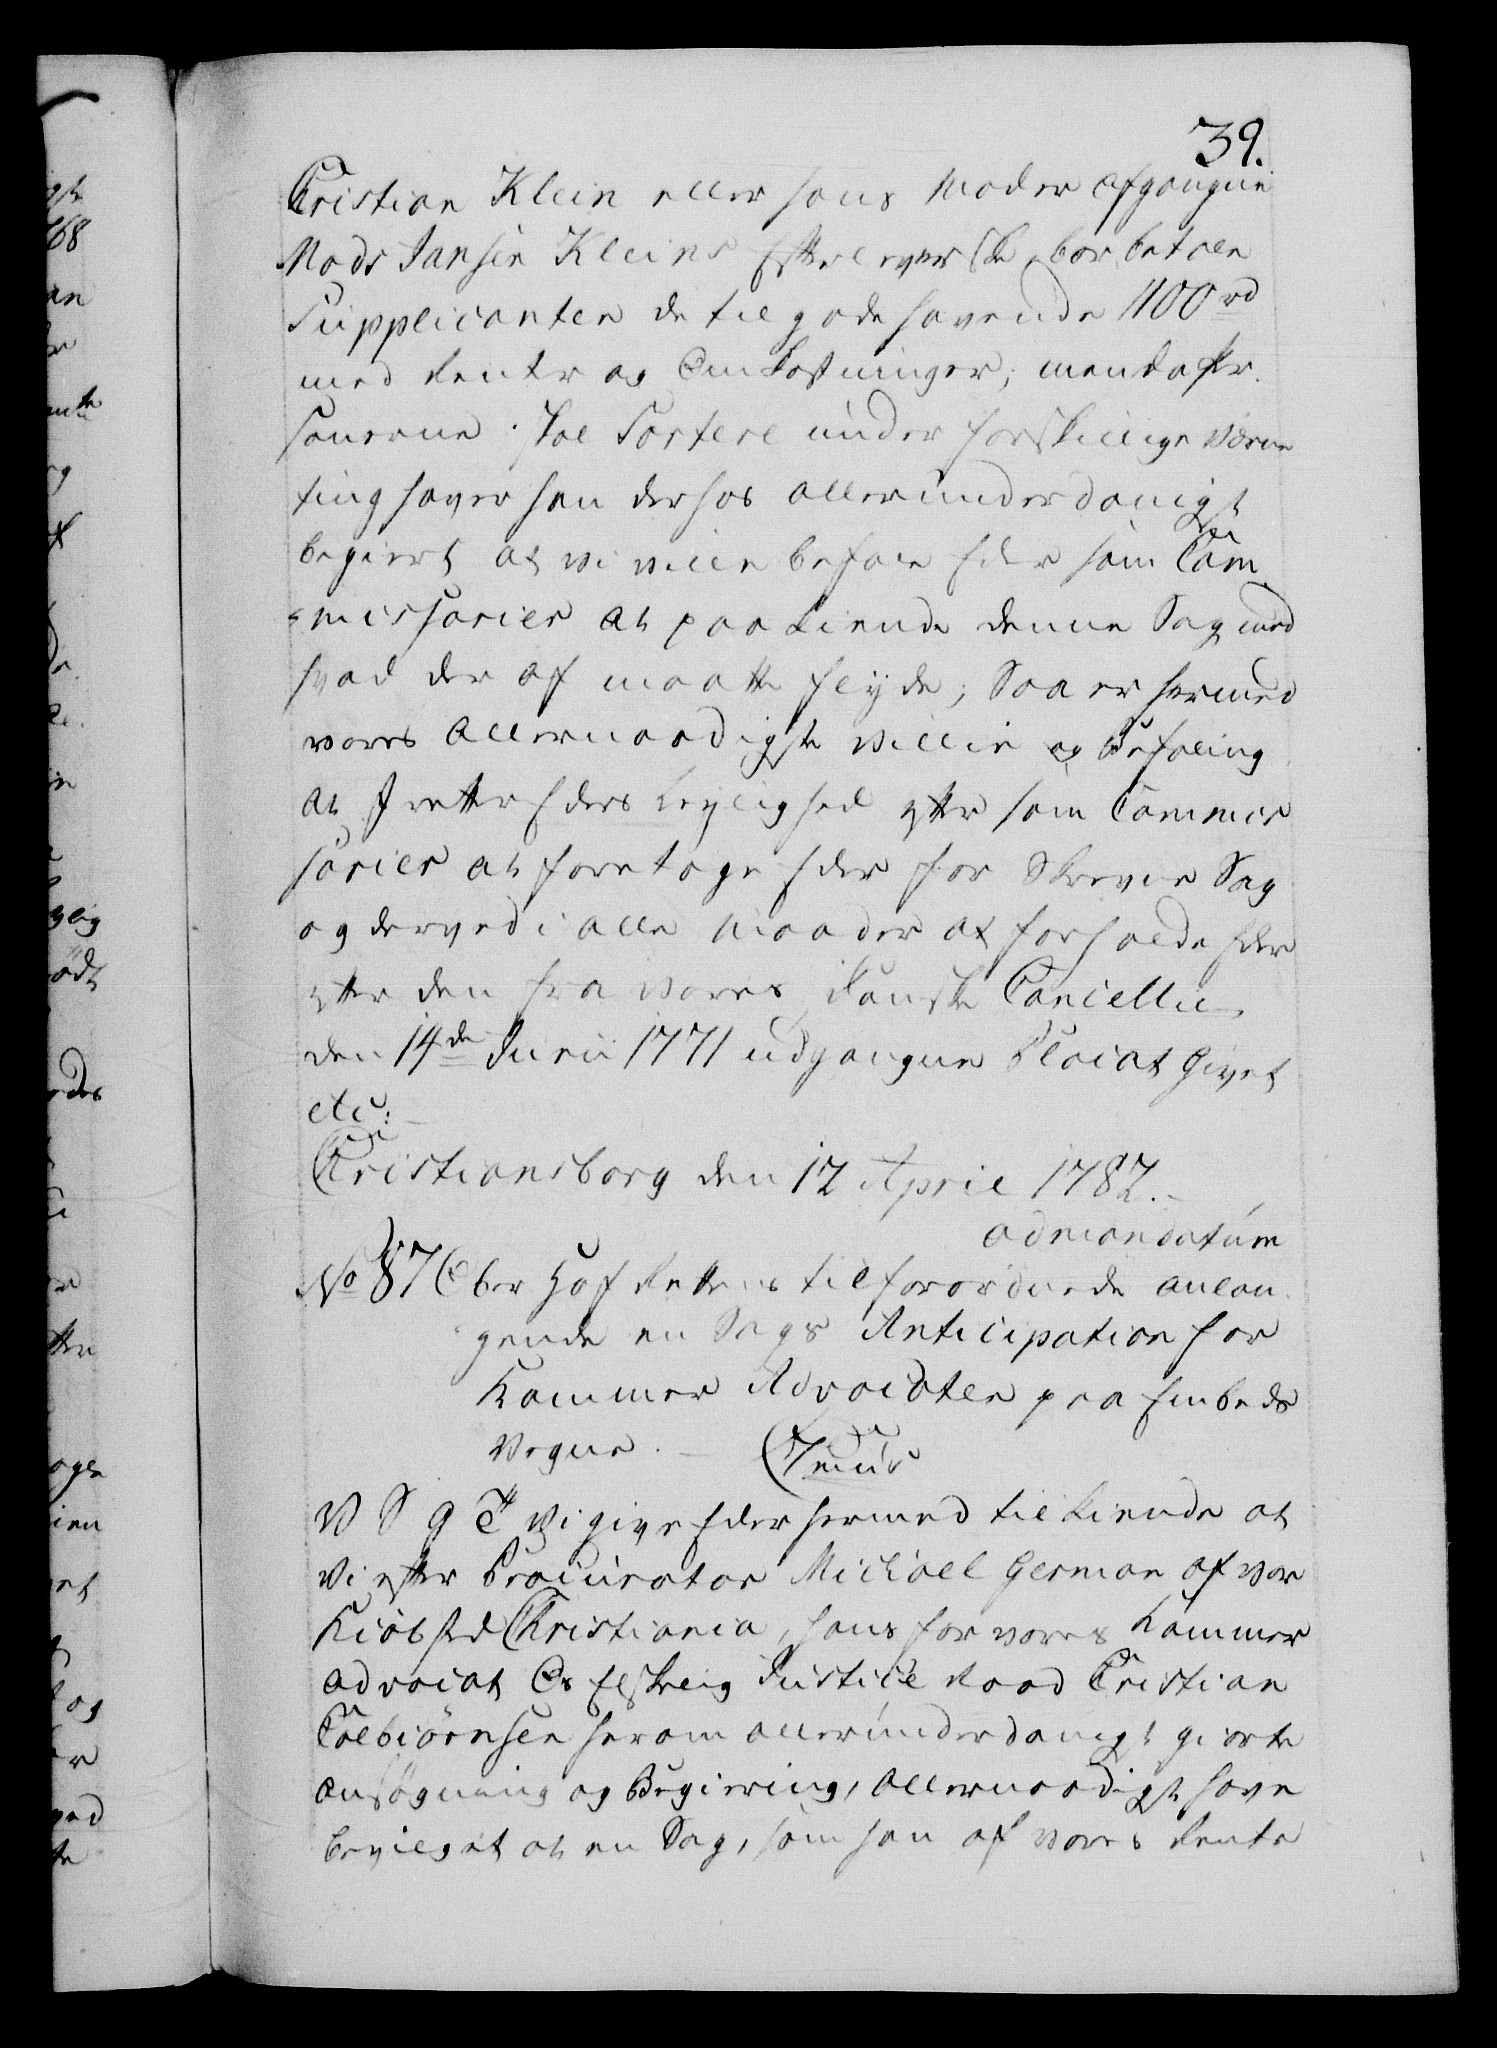 39.
Cristian Klein eller hans Moder afgangne
Mads Jansen Kleins Efterleverske bør betale
Supplicanten de tilgodehavende 1100 rd
med Renter og Omkostninger; men da Per-
sonerne skal Sortere under forskiellige Værne
ting haver han derhos allerunderdanigst
begiert at vi ville befale Eder som Com
misarier at paakiende denne Sag med
hvad der af maatte flyde; Saa er hermed
vores allernaadigste Villie og Befaling
at I rette Eders Leylighed efter som Commis
sarier at foretage Eder forskrevne Sag
og derved i alle Maader at forholde Eder
efter den fra vores danske Cancellie
den 14de Junii 1771 udgangne Placat Givet
etc:
Christiansborg den 12 April 1782.
ad mandatum
No 87 Ober Hof Rettens tilforordnede anlan
gende en Sags Anticipation for
Kammer Advocaten paa Embeds
Vegne.
V S G T Vi give Eder hermed tilkiende at
Vi efter Procurator Michael German af vor
Kiøbsted Christiania, hans for vores Kammer
advocat Os Elskelig Justice Raad Cristian
Colbiørnsen herom allerunderdanigst giorte
ansøgning og Begiering, allernaadigst have
bevilget at en Sag, som han af vores Rente